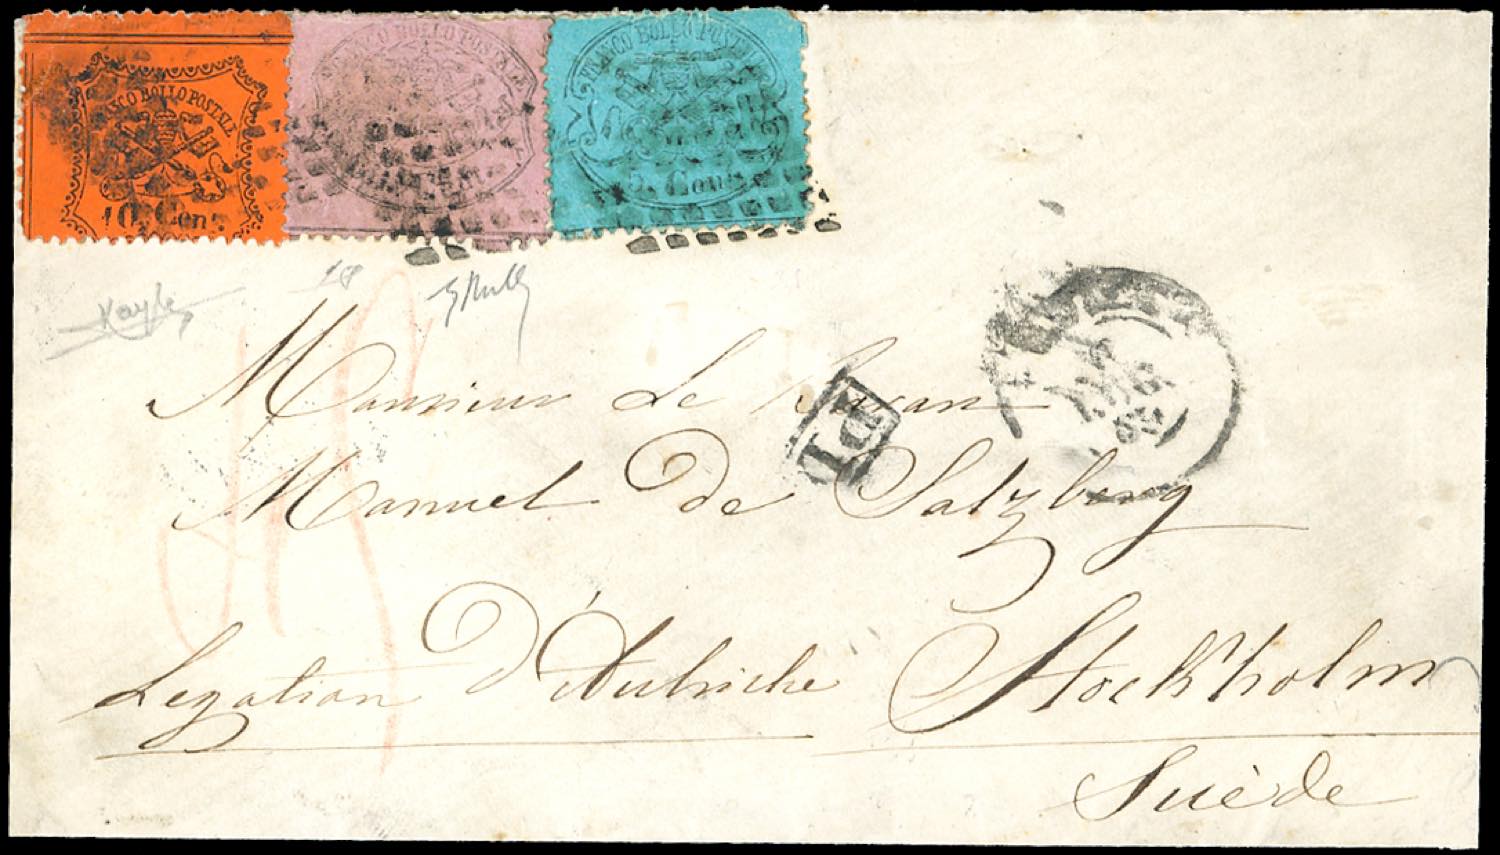 FRANCO BOLLO POSTALE
10. Cen
FRANCO BOLLO POSTALE
FRANCO BOLLO POSTALE
5. Cent
PD
Monsieur Le Baron
Manuel de Salzberg
Legation d'Autriche Stockholm
Suède